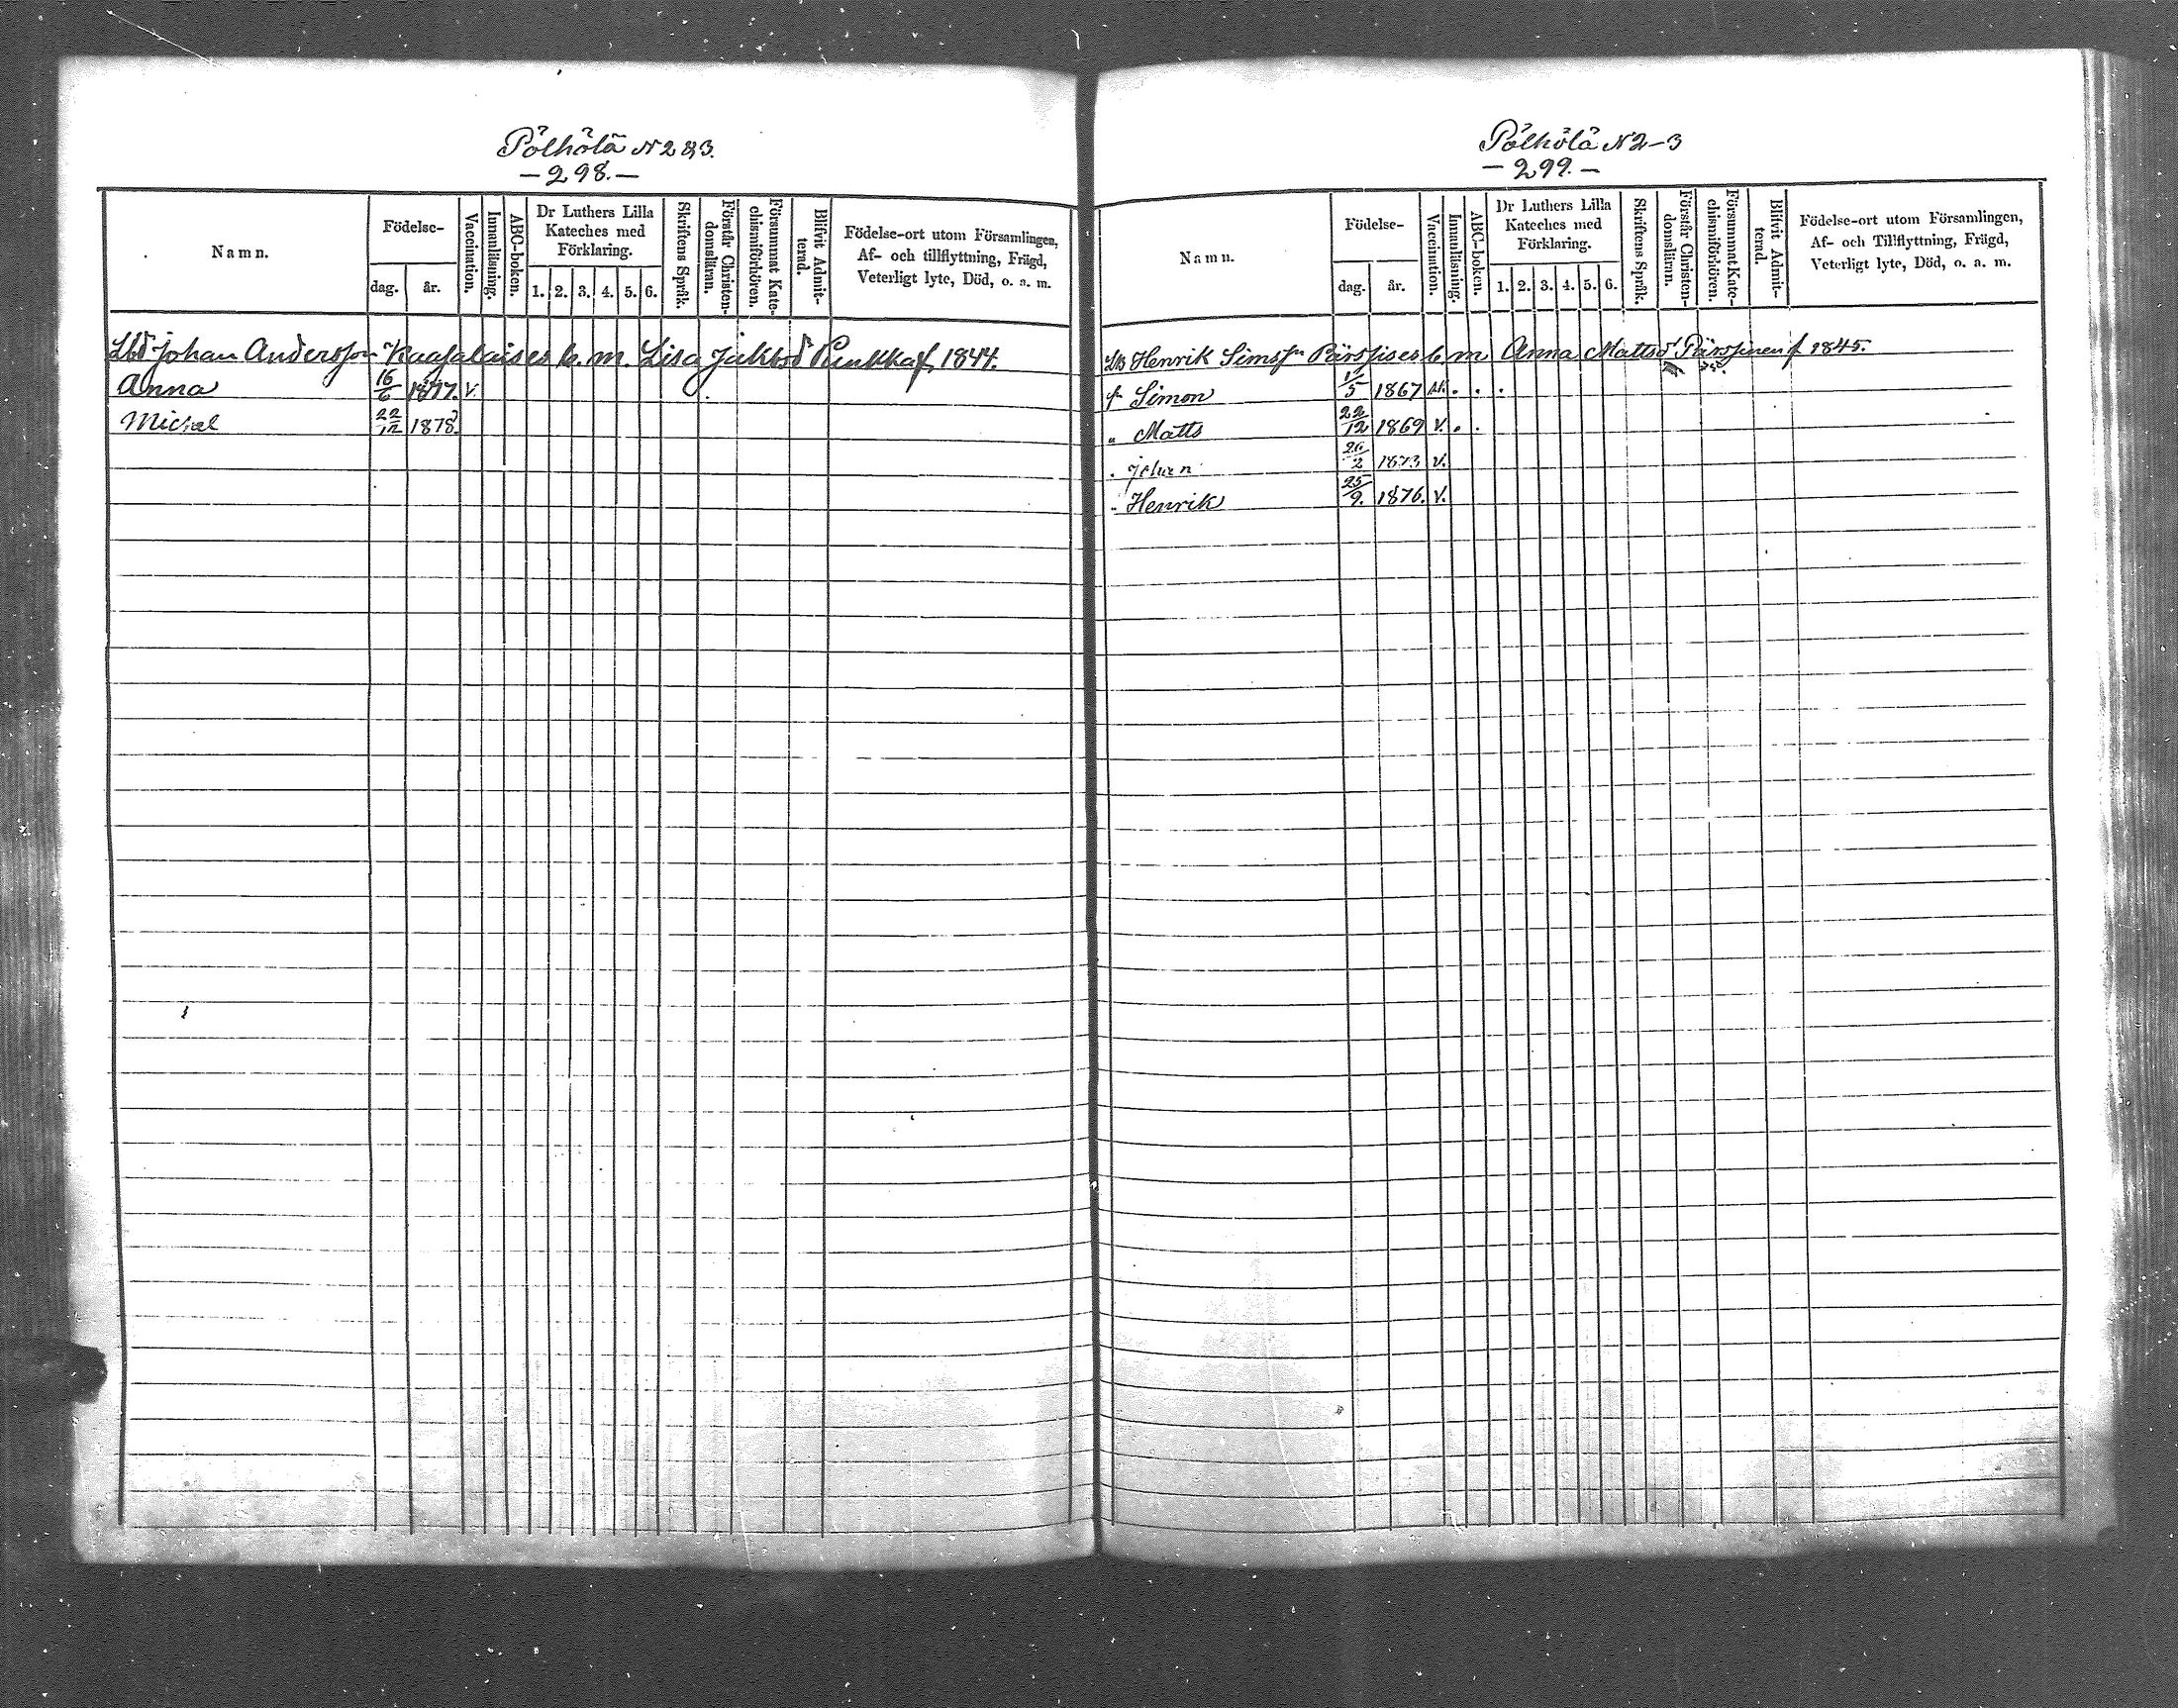 Pölhölä N 2 & 3.
— 298. —
Namn.
Födelse-
dag.
år.
Vaccination.
Innanläsning.
ABC-boken.
Dr Luthers Lilla
Kateches med
Förklaring.
1. 2. 3. 4. 5. 6.
Skriftens Språk.
Förstår Christen-
domsläran.
Försummat Kate-
chismiförhören.
Blifvit Admit-
terad.
Födelse-ort utom Församlingen,
Af- och tillflyttning, Frägd,
Veterligt lyte, Död, o. a. m.
Johan Andersson b. m. Lisa Jakobsd f. 1844.
Anna 16/6 1877. v.
Michel 22/12 1878.
Pölhölä N 2-3
— 299. —
Namn.
Födelse-
dag.
år.
Vaccination.
Innanläsning.
ABC-boken.
Dr Luthers Lilla
Kateches med
Förklaring.
1. 2. 3. 4. 5. 6.
Skriftens Språk.
Förstår Christen-
domsläran.
Försummat Kate-
chismiförhören.
Blifvit Admit-
terad.
Födelse-ort utom Församlingen,
Af- och Tillflyttning, Frägd,
Veterligt lyte, Död, o. a. m.
Henrik Simsson Pärssises b. m Anna Mattsd Pärssinen f. 1845.
Simon 1867
" Matts 22/12 1869 v. . .
Johan 1873 v.
" Henrik 25/9. 1876. v.